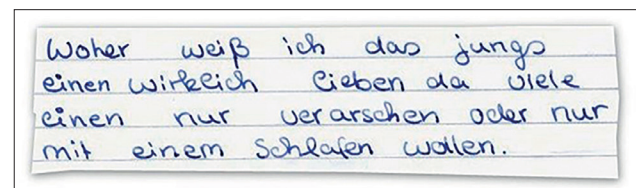 Woher weiß ich das jungs
einen wirklich lieben da viele
einen nur verarschen oder nur
mit einem schlafen wollen.